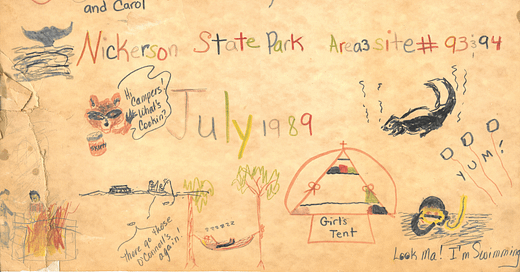 and Carol
Nickerson State Park Area 3 site # 93 & 94
Hi
Campers!
What's
Cookin?
July 1989
YUM!
there go those
O'Connell's
again!
zzzzzz
Girl's
Tent
Look Ma! I'm Swimming